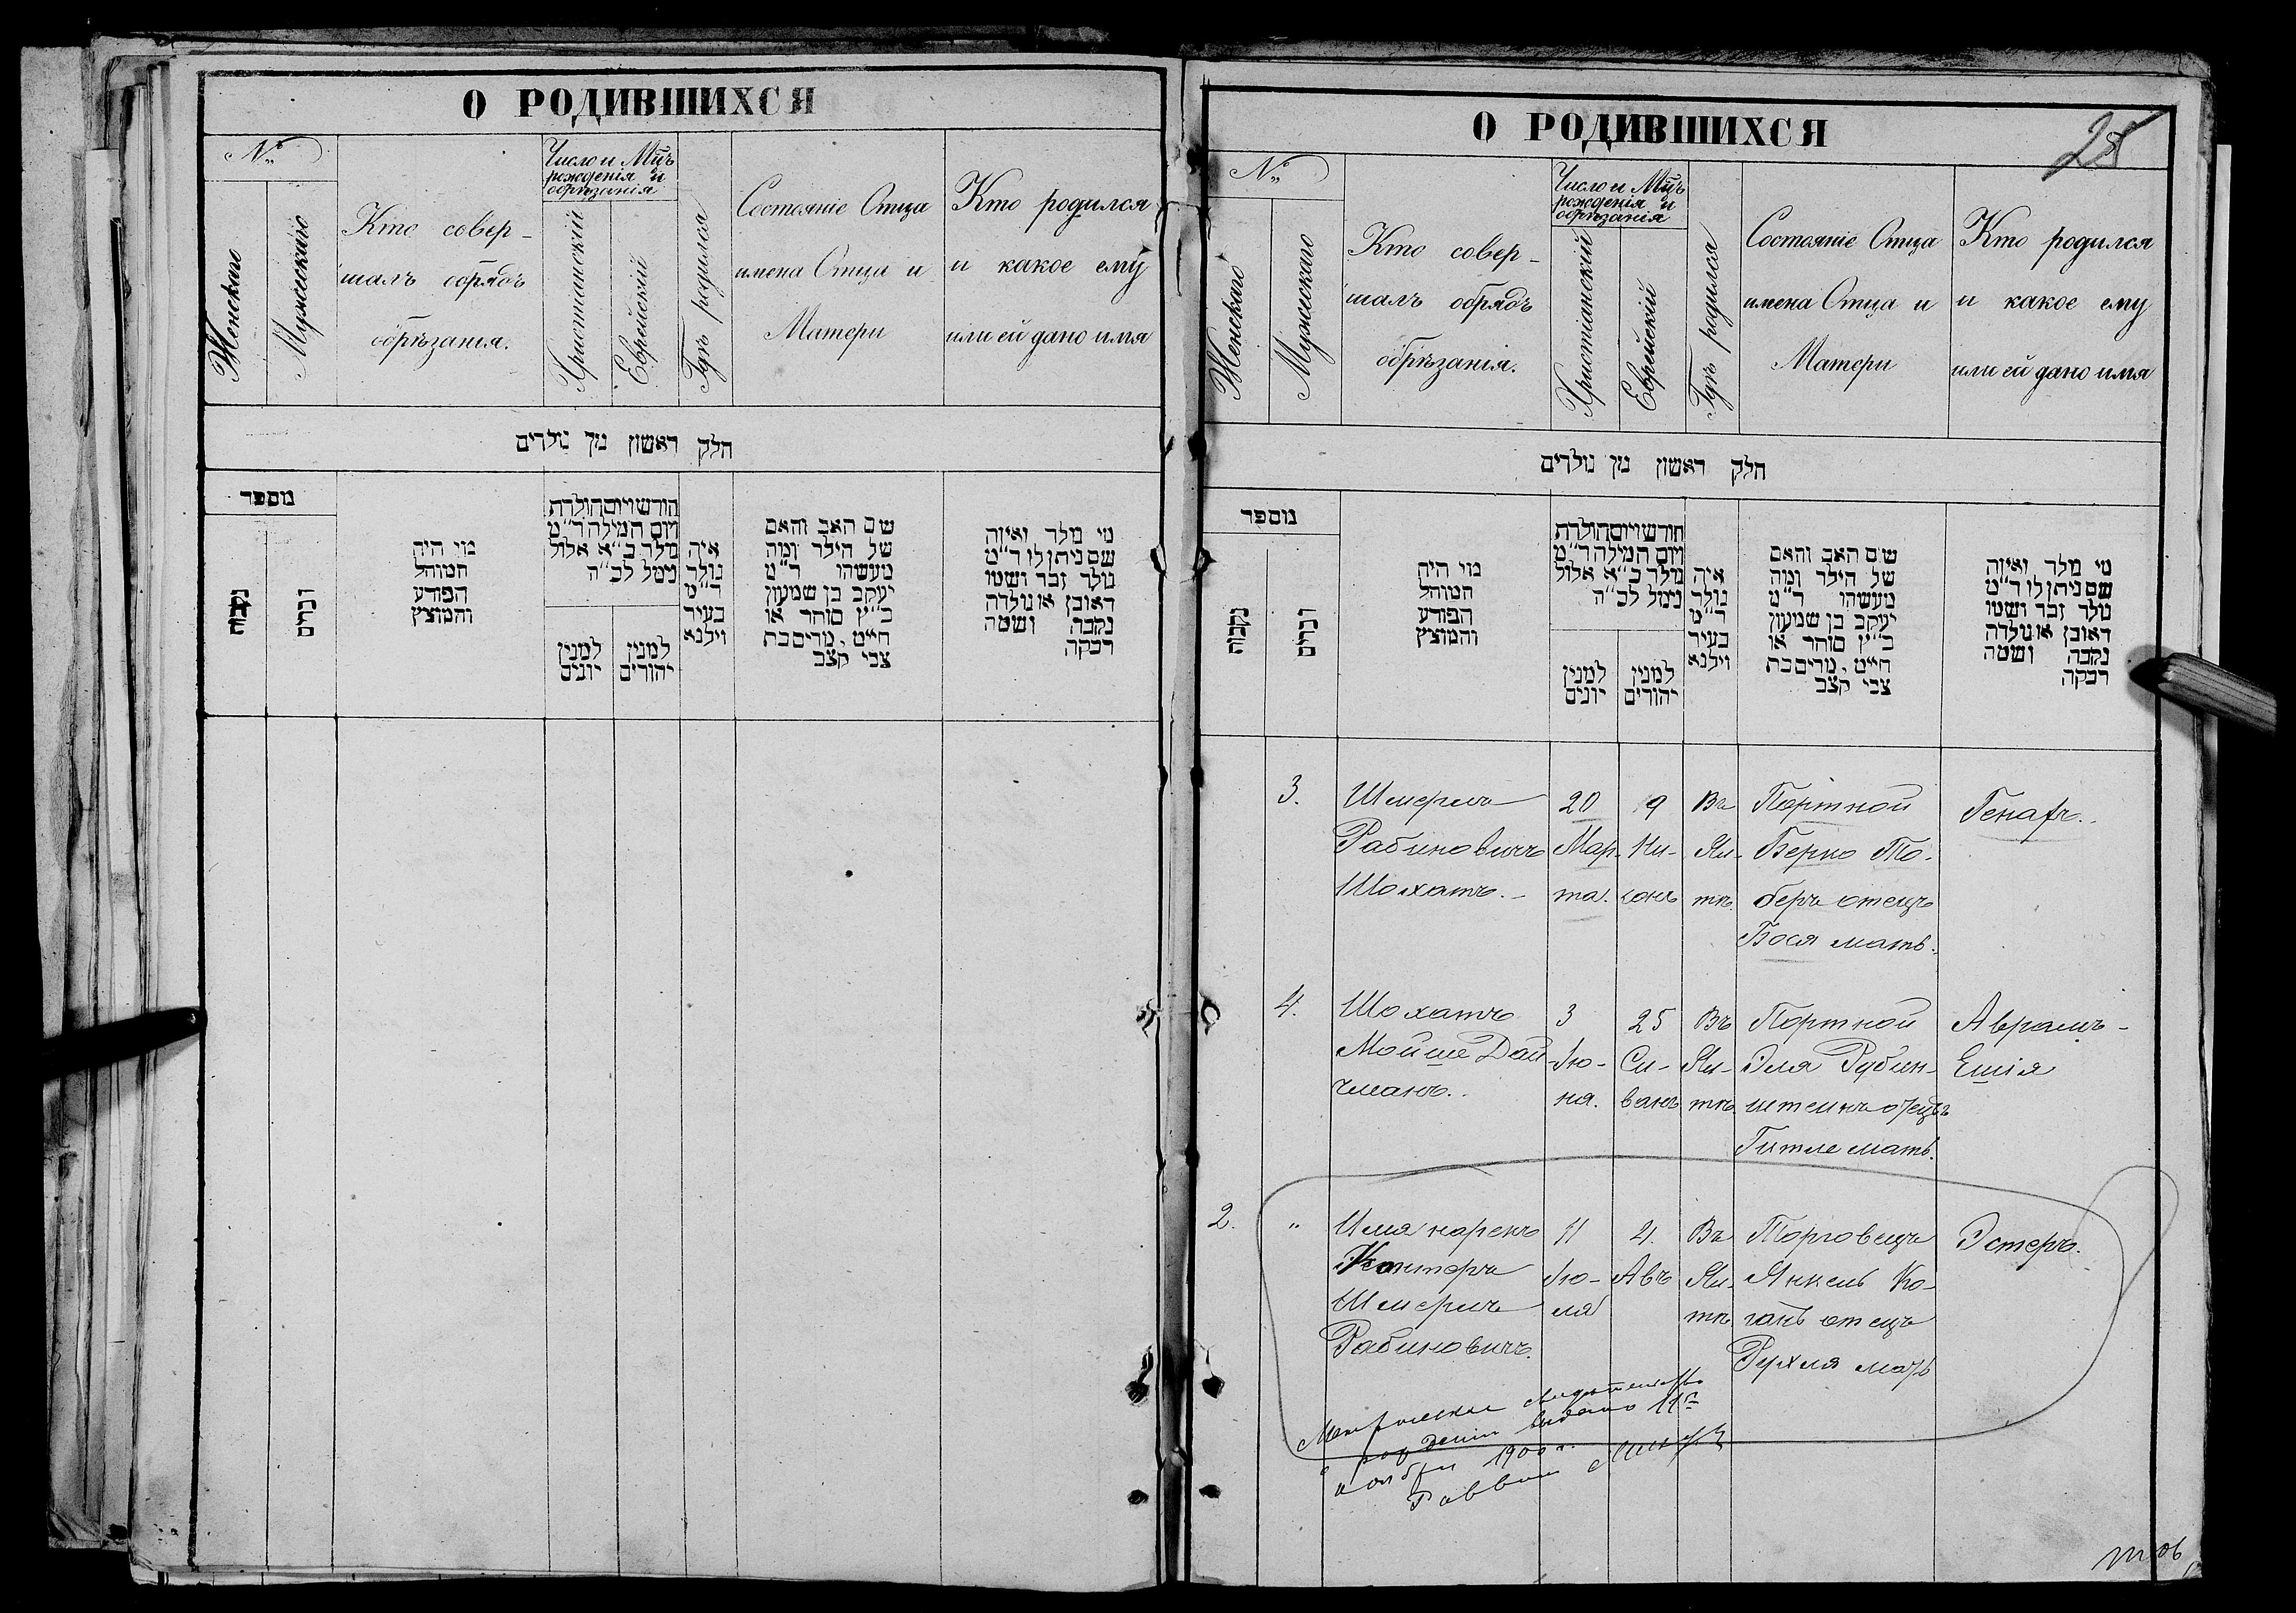 О РОДИВШИХСЯ
№
Женскаго
Мужескаго
Кто совер-
шалъ обрядъ
обрѣзанія.
Число и Мѣць
рожденія и
обрѣзанія
Христіанскій
Еврейскій
Гдѣ родился
Состояніе Отца
имена Отца и
Матери
Кто родился
и какое ему
или ей дано имя
חלק ראשון מן נולדים
מספר
נקבות
זכרים
מי היה
המוהל
הפודע
והמוצץ
חודש ויום הולדת
ויום המילה ד״מ
נולד כ״א אלול
נימל לכ״ה
למנין
יונים
למנין
יהודים
איה
נולד
ד״מ
בעיר
וילנא
שם האב והאם
של הילד ומה
מעשהו ד״מ
יעקב בן שמעון
כ״ץ סוחר או
חייט, מרים בת
צבי קצב
מי נולד ואיזה
שם ניתן לו ד״מ
נולד זכר ושמו
ראובן או נולדה
נקבה ושמה
רבקה
О РОДИВШИХСЯ
25
№
Женскаго
Мужескаго
Кто совер-
шалъ обрядъ
обрѣзанія.
Число и Мѣць
рожденія и
обрѣзанія
Христіанскій
Еврейскій
Гдѣ родился
Состояніе Отца
имена Отца и
Матери
Кто родился
и какое ему
или ей дано имя
חלק ראשון מן נולדים
מספר
נקבות
זכרים
מי היה
המוהל
הפודע
והמוצץ
חודש ויום הולדת
ויום המילה ד״מ
נולד כ״א אלול
נימל לכ״ה
למנין
יונים
למנין
יהודים
איה
נולד
ד״מ
בעיר
וילנא
שם האב והאם
של הילד ומה
מעשהו ד״מ
יעקב בן שמעון
כ״ץ סוחר או
חייט, מרים בת
צבי קצב
מי נולד ואיזה
שם ניתן לו ד״מ
נולד זכר ושמו
ראובן או נולדה
נקבה ושמה
רבקה
3. Шмериъ 20 9 Въ Портной Генахъ.
Рабиновичъ Мар- Ни- Яи- Берко То-
Шохатъ. та. санъ тѣ. беръ отецъ
Бася мать.
4. Шохатъ 3 25 Въ Портной Аврамъ-
Мойше Дай- Ію- Си- Яи- Эля Рубин- Ешія
чманъ. ня. ванъ тѣ. штейнъ отецъ
Гитле мать.
2. " Имя нарекъ 11 4. Въ Торговецъ Эстеръ.
Кантеръ Ію- Авъ Яи- Янкель Ко-
Шмериъ ля тѣ. ганъ отецъ
Рабиновичъ. Рухля мать
Метрическое свидѣтельство
о рожденіи выдано 11го
ноября 1900 г.
Раввинъ